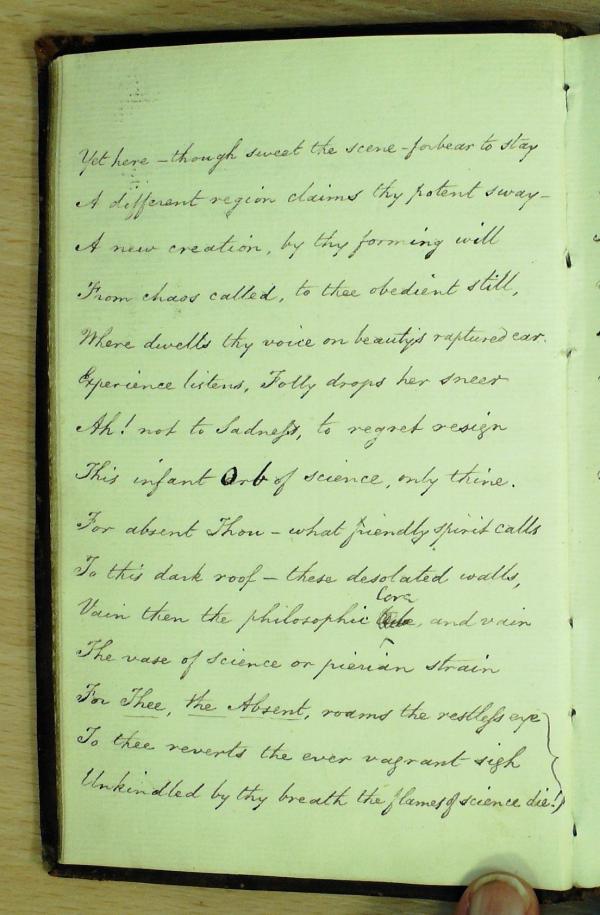 Yet here – though sweet the scene – forbear to stay
A different region claims thy potent sway –
A new creation, by thy forming will
From chaos called, to thee obedient still,
Where dwells thy voice on beauty's raptured ear.
Experience listens, Folly drops her sneer
Ah! not to Sadneſs, to regret resign
This infant Orb of science, only thine.
For absent Thou – what friendly spirit calls
To this dark roof – these desolated walls,
Vain then the philosophic Lore, and vain
The vase of science or pierian strain
For Thee, the Absent, roams the restleſs eye
To thee reverts the ever vagrant sigh
Unkindled by thy breath the flames of science die!)